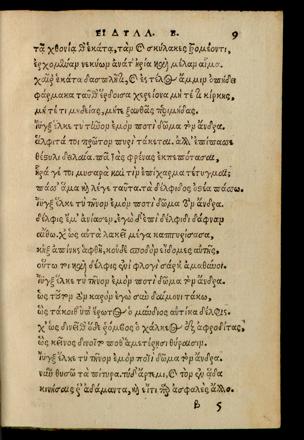 ΕΙΔΥΛΛ. Β. 9
τᾷ χθονίᾳ θ' ἑκάτᾳ, τὰν καὶ σκύλακες τρομέοντι,
ἐρχομέναν νεκύων ἀνά τ' ἠρία καὶ μέλαν αἷμα.
χαῖρ' ἑκάτα δασπλῆτι, καὶ ἐς τέλος ἄμμιν ὀπάδει
φάρμακα ταῦθ' ἕρδοισα χερείονα μήτέ τι κίρκης,
μήτέ τι μηδείας, μήτε ξανθᾶς περιμήδας.
ἴϋγξ ἕλκε τὺ τῆνον ἐμὸν ποτὶ δῶμα τὸν ἄνδρα.
ἄλφιτά τοι πρᾶτον πυρὶ τάκεται. ἀλλ' ἐπίπασσε
θέστυλι δειλαία. πᾶ τὰς φρένας ἐκπεπότασαι.
ἦρά γέ τοι μυσαρὰ καὶ τὶν ἐπίχαρμα τέτυγμαι;
πάσσ' ἅμα καὶ λέγε ταῦτα. τὰ δέλφιδος ὀστέα πάσσω.
ἴϋγξ ἕλκε τὺ τῆνον ἐμὸν ποτὶ δῶμα τὸν ἄνδρα.
δέλφις ἔμ' ἀνίασεν. ἐγὼ δ' ἐπὶ δέλφιδι δάφναν
αἴθω. χ' ὡς αὐτὰ λακεῖ μέγα καππυρίσασα,
κἠξ ἀπίνης ἄφθη, κοὐδὲ σποδὸν εἴδομες αὐτῆς,
οὕτω τοι καὶ δέλφις ἐνὶ φλογὶ σάρκ' ἀμαθύνοι.
ἴϋγξ ἕλκε τὺ τῆνον ἐμὸν ποτὶ δῶμα τὸν ἄνδρα.
ὡς τοῦτον τὸν καρὸν ἐγὼ σὺν δαίμονι τάκω,
ὣς τάκοιθ' ὑπ' ἔρωτος ὁ μύνδιος αὐτίκα δέλφις.
χ' ὡς δινεῖθ' ὅδε ῥόμβος ὁ χάλκεος ἐξ ἀφροδίτας,
ὣς κεῖνος δινοῖτο ποθ' ἁμετέρῃσι θύρῃσιν.
ἴϋγξ ἕλκε τὺ τῆνον ἐμὸν ποτὶ δῶμα τὸν ἄνδρα.
νῦν θυσῶ τὰ πίτυρα. τὺ δ' ἄρτεμι, καὶ τὸν ἐν ᾅδα
κινήσαις κ' ἀδάμαντα, καὶ εἴ τι περ ἀσφαλὲς ἄλλο.
B 5